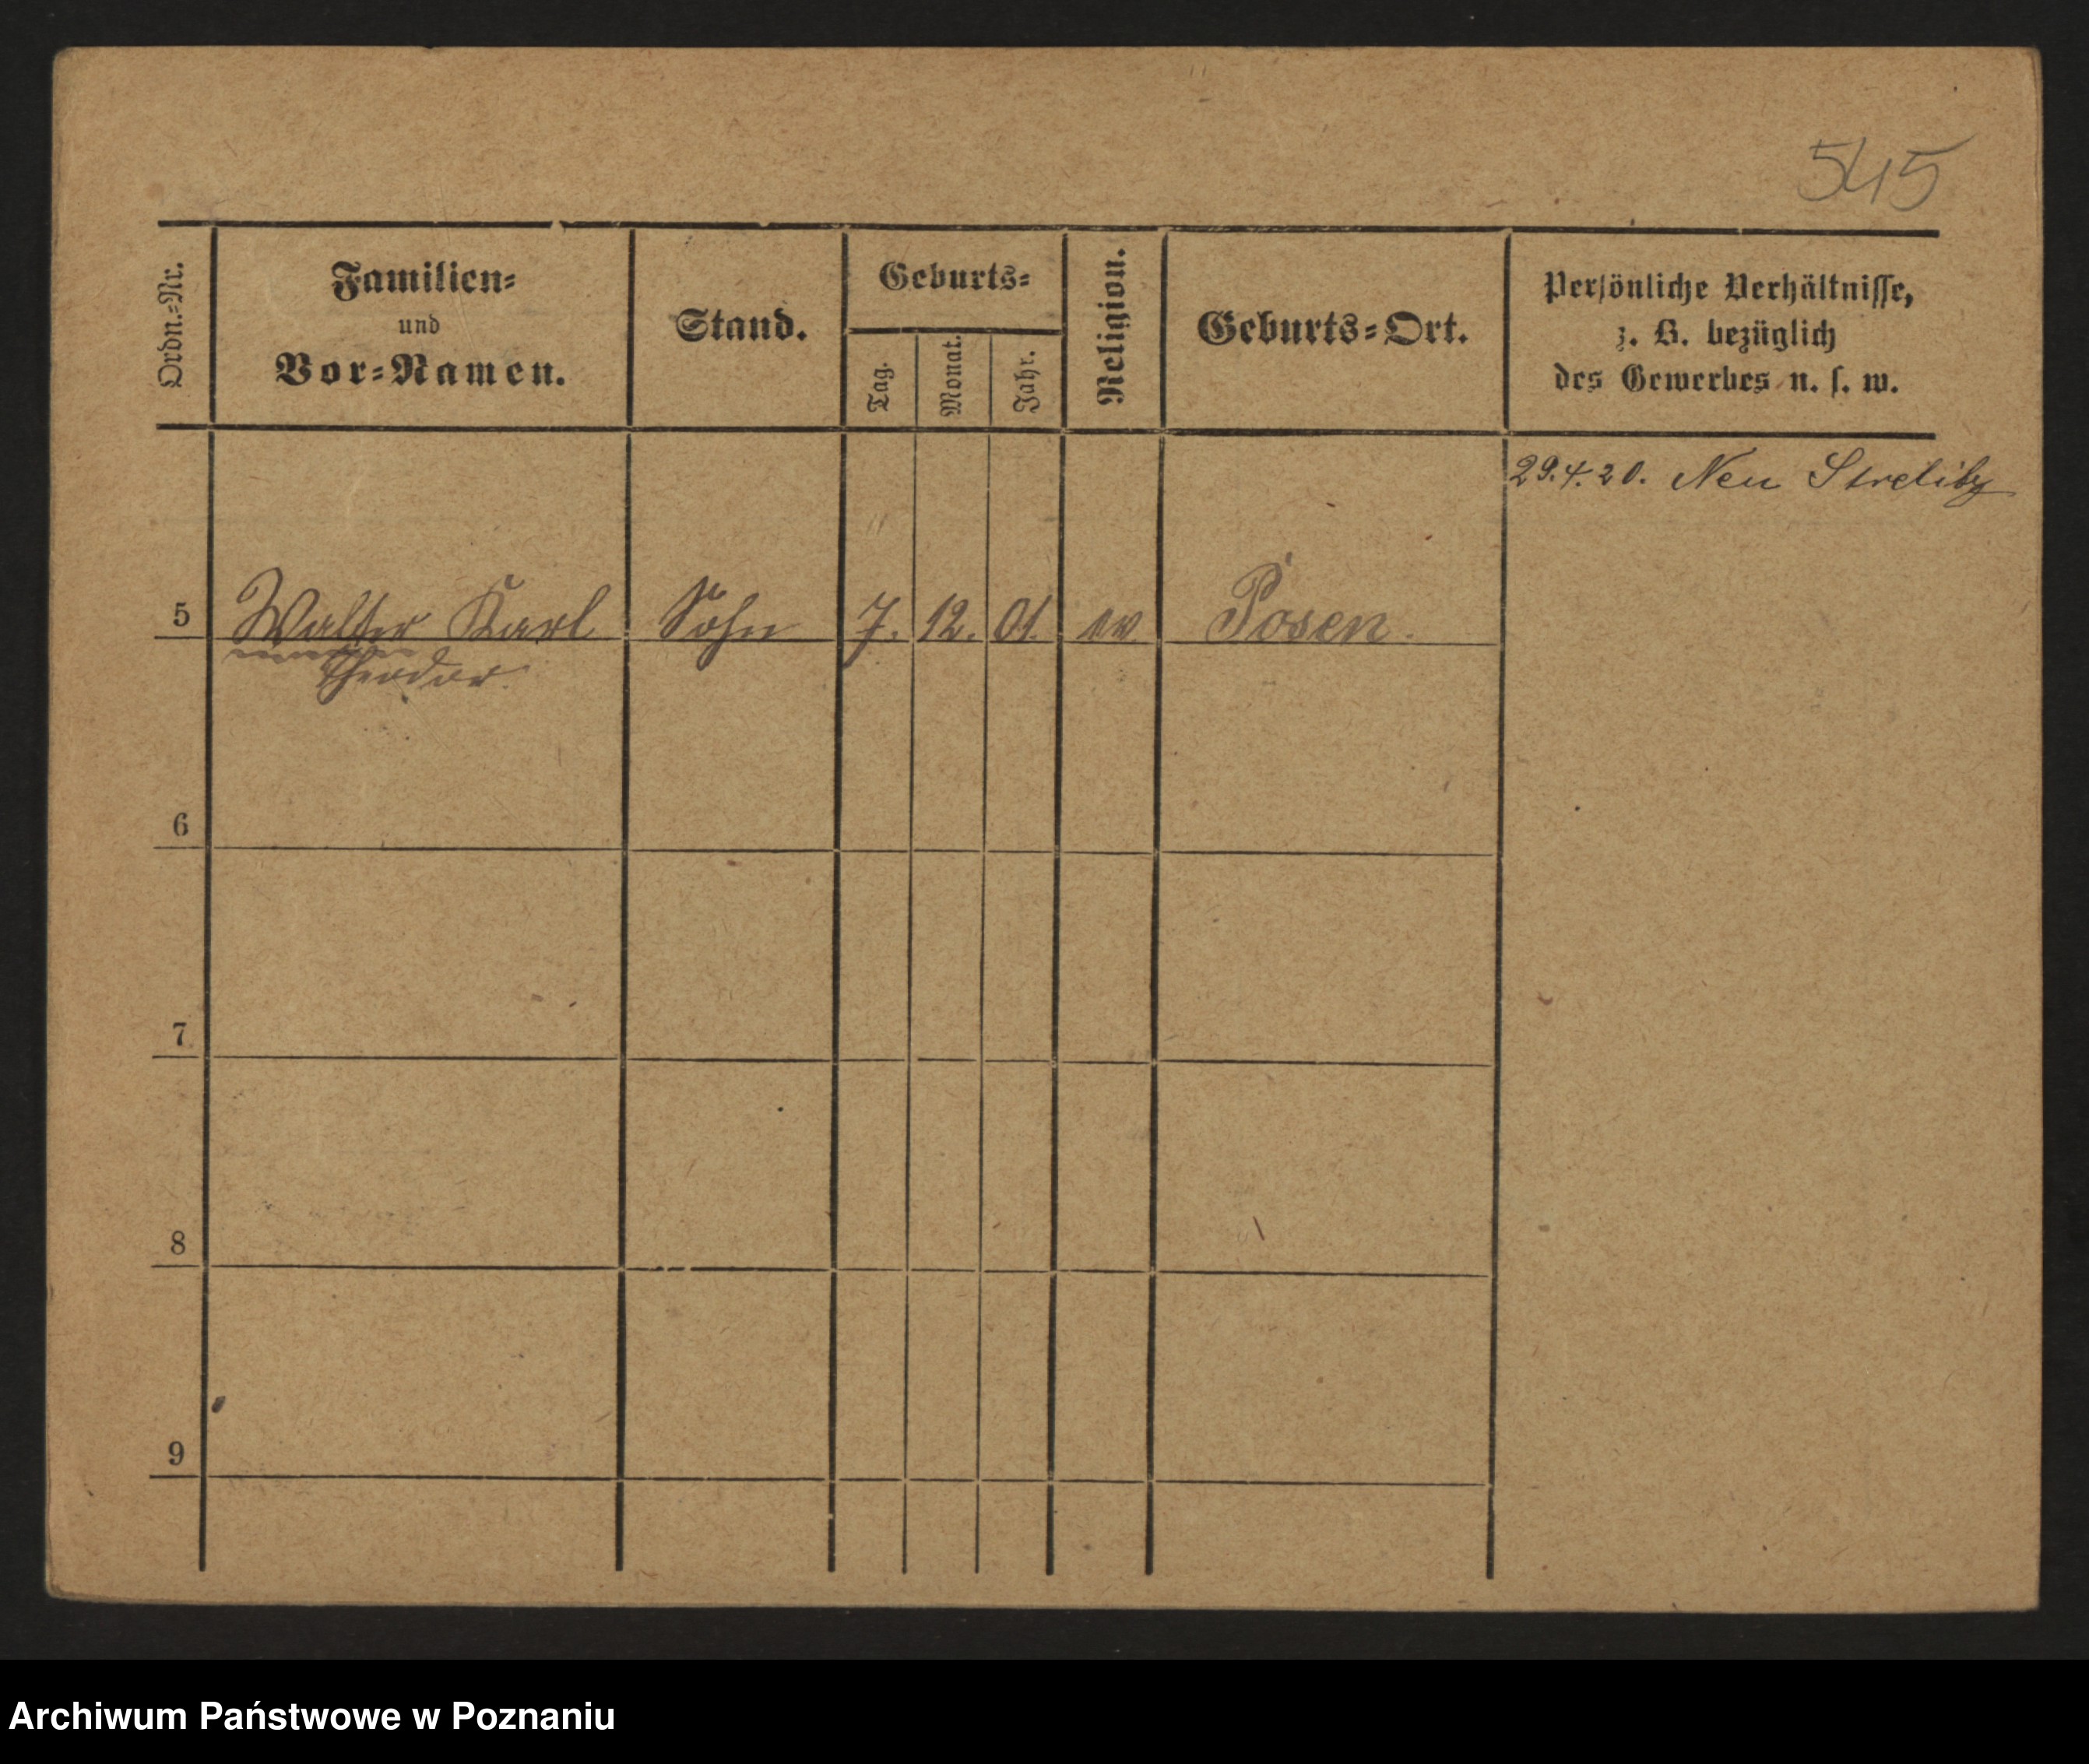 545
Ordn.=Nr.
Familien=
und
Vor=Namen.
Stand.
Geburts=
Tag.
Monat.
Jahr.
Religion.
Geburts=Ort.
Persönliche Verhältnisse,
z. B. bezüglich
des Gewerbes u. s. w.
29.4.20. Neu Strelitz
5 Walter Karl Sohn 7. 12. 01. ev Posen.
Theodor.
6
7
8
9
Archiwum Państwowe w Poznaniu